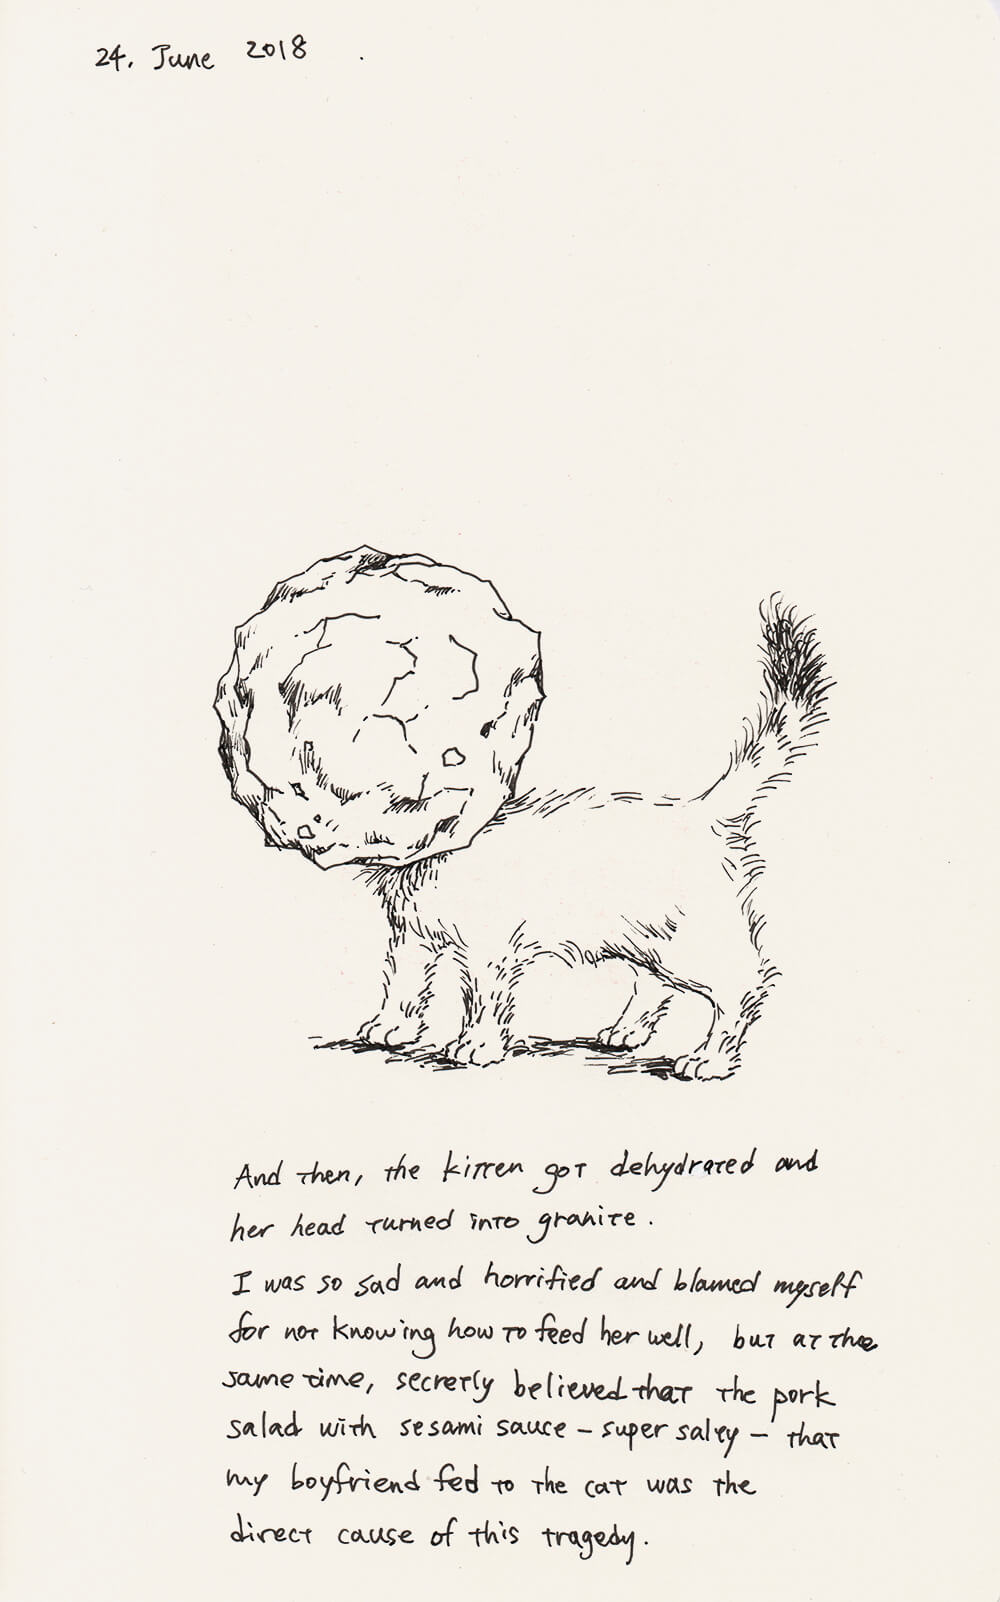 24. June 2018
And then, the kitten got dehydrated and
her head turned into granite.
I was so sad and horrified and blamed myself
for not knowing how to feed her well, but at the
same time, secretly believed that the pork
salad with sesami sauce – super salty – that
my boyfriend fed to the cat was the
direct cause of this tragedy.